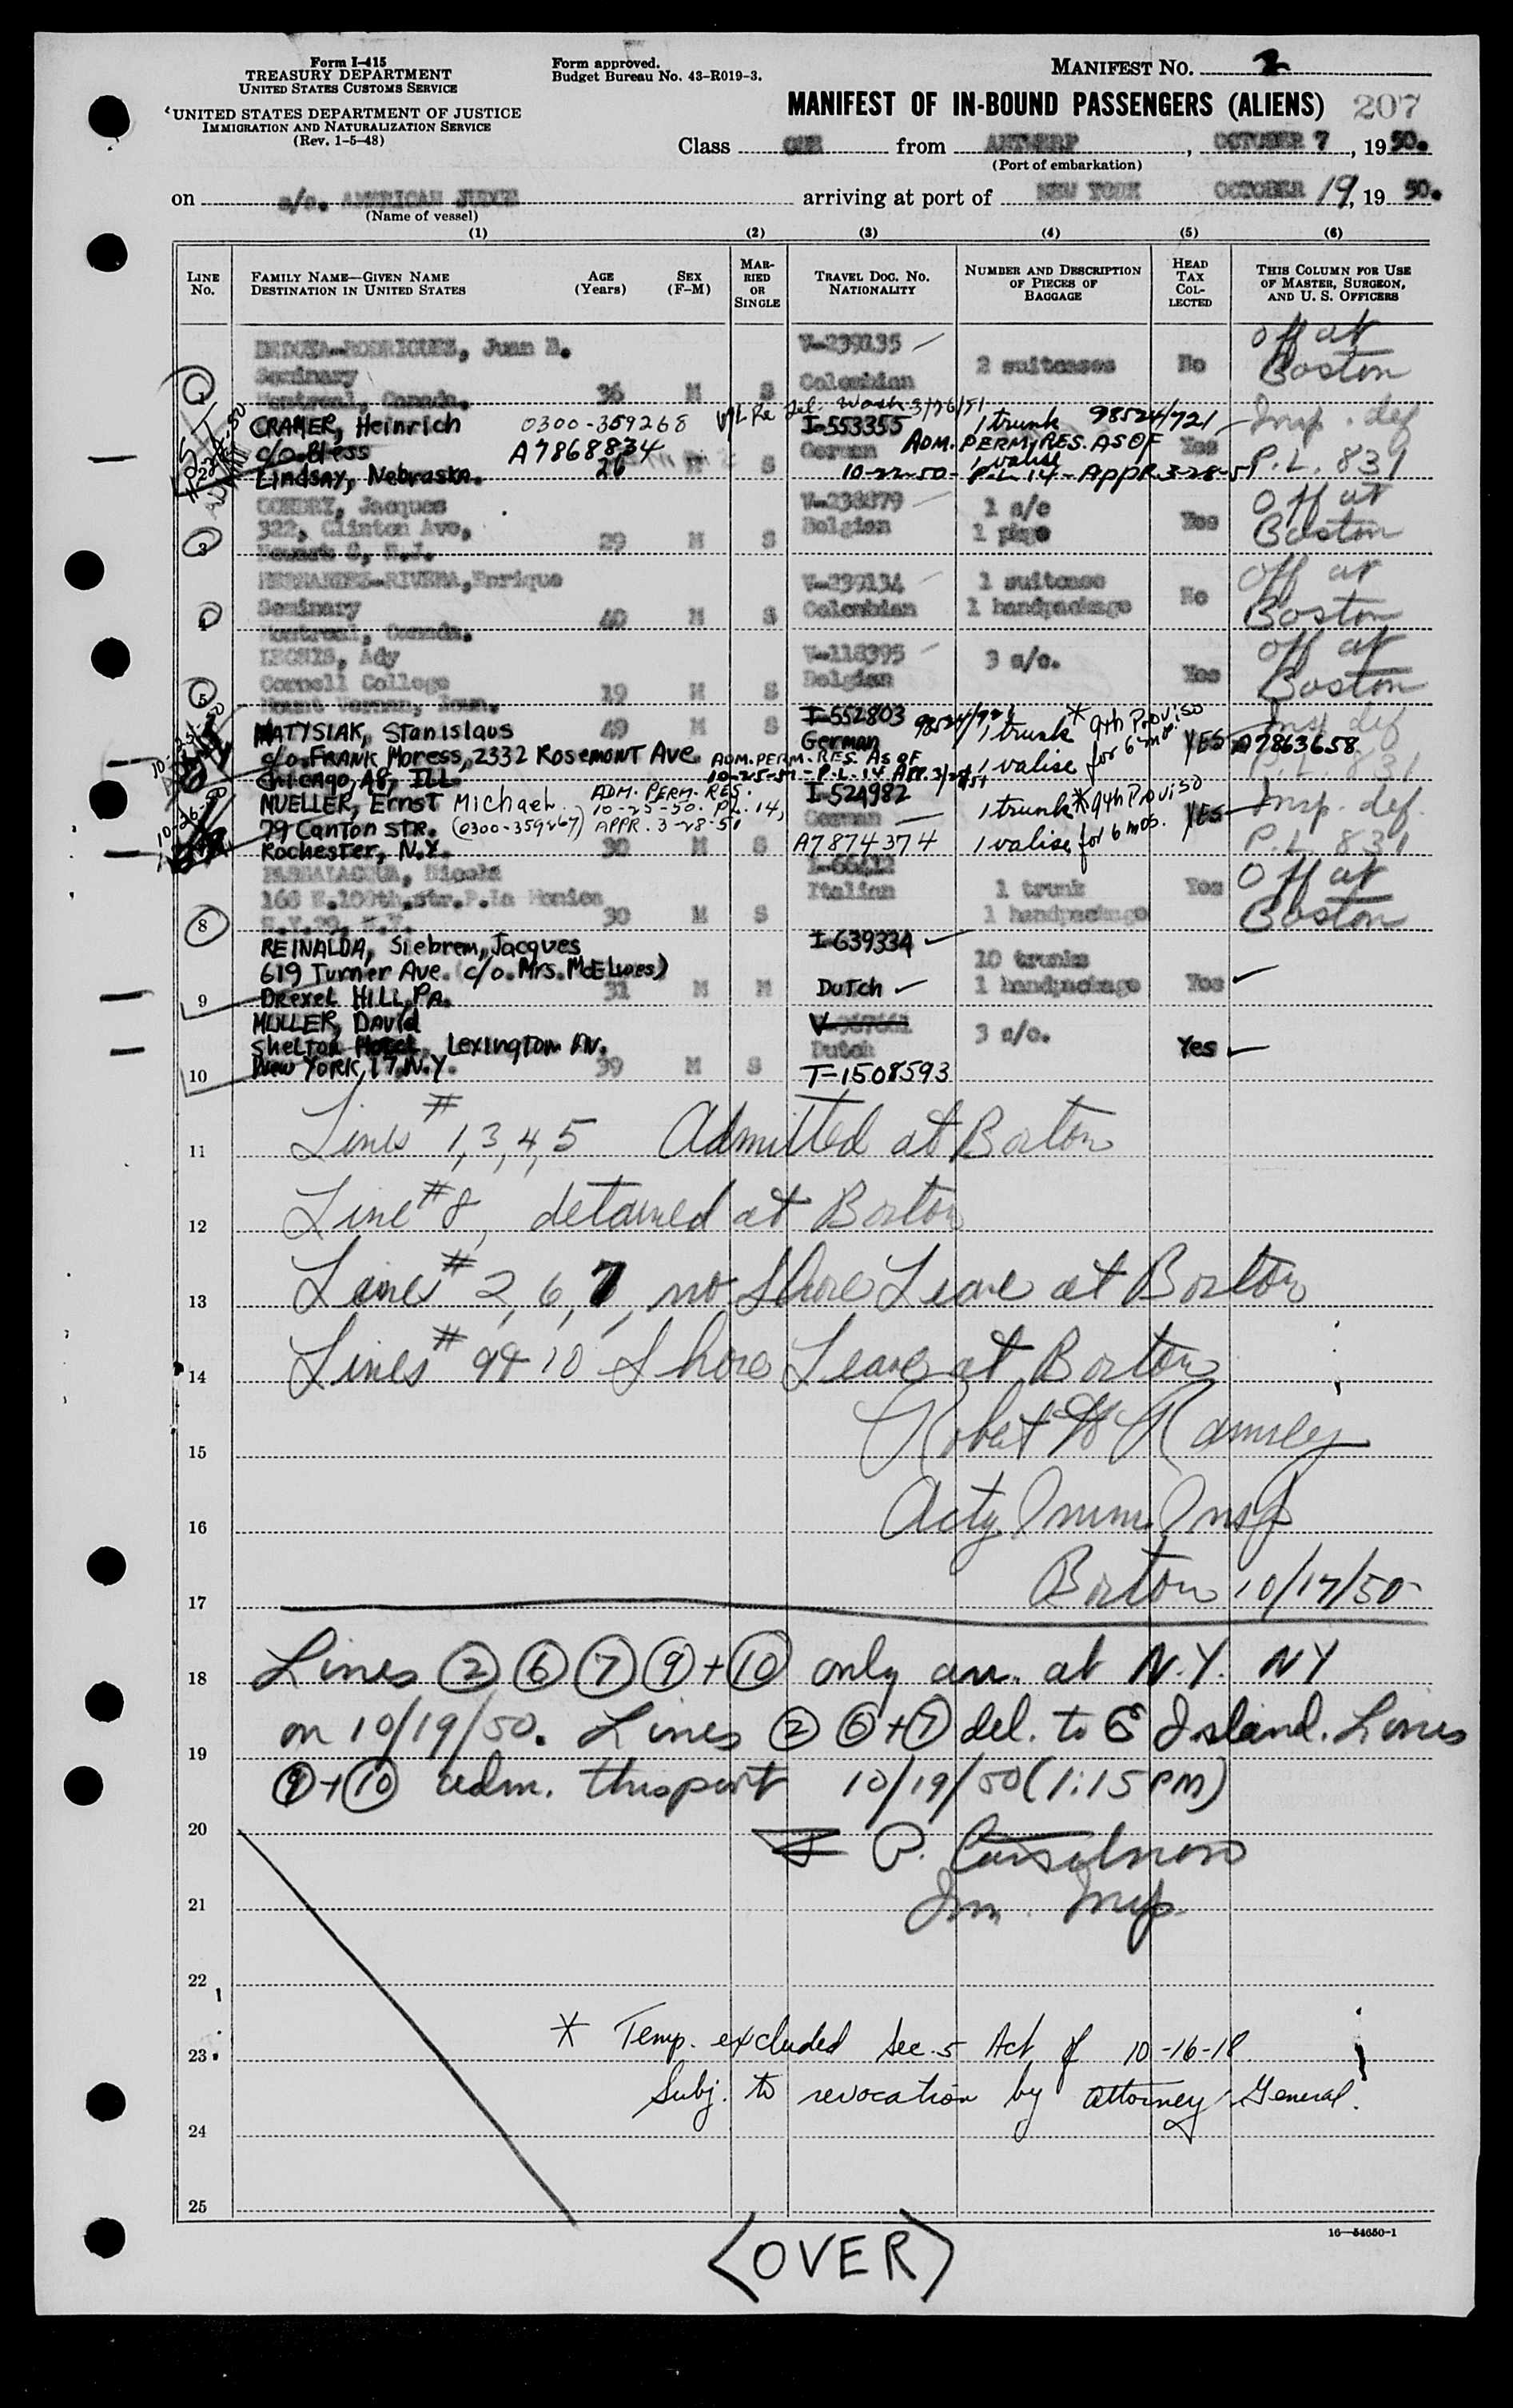 Form I-415
TREASURY DEPARTMENT
UNITED STATES CUSTOMS SERVICE
UNITED STATES DEPARTMENT OF JUSTICE
IMMIGRATION AND NATURALIZATION SERVICE
(Rev. 1-5-48)
Form approved.
Budget Bureau No. 43-R019-3.
MANIFEST NO. 2
MANIFEST OF IN-BOUND PASSENGERS (ALIENS) 207
Class ONE from ANTWERP, OCTOBER 7, 1950.
(Port of embarkation)
on s/s. AMERICAN JUDGE arriving at port of NEW YORK OCTOBER 19, 1950.
(Name of vessel)
(1) (2) (3) (4) (5) (6)
LINE No.
FAMILY NAME—GIVEN NAME
DESTINATION IN UNITED STATES
AGE (Years)
SEX (F-M)
MARRIED OR SINGLE
TRAVEL DOC. NO.
NATIONALITY
NUMBER AND DESCRIPTION OF PIECES OF BAGGAGE
HEAD TAX COLLECTED
THIS COLUMN FOR USE OF MASTER, SURGEON, AND U. S. OFFICERS
Juan B. V-239135 Off at
Seminary Colombian 2 suitcases No Boston
1 Montreal, Canada. 36 M S
CRAMER, Heinrich 0300-359268 I-553355 1 trunk 98524/721 Insp. def
c/o Bless A7868834 German ADM. PERM. RES. AS OF 1 valise Yes P.L. 831
Lindsay, Nebraska. 26 M S 10-22-50 - P.L. 14 - APPR. 3-28-51
Jacques V-238879 1 s/c Off at
322, Clinton Ave, Belgian 1 Yes Boston
3 Newark 8, N.J. 29 M S
HERNANDEZ-RIVERA, Enrique V-239134 1 suitcase Off at
Seminary Colombian 1 handpackage No Boston
4 Montreal, Canada. 40 M S
Ady V-118395 3 s/c. Off at
Cornell College Belgian Yes Boston
5 Mount Vernon, Iowa. 19 M S
MATYSIAK, Stanislaus 49 M S I-552803 98524/721 1 trunk * 9th Proviso for 6 mos. Insp. def
c/o FRANK Moress, 2332 Rosemont Ave. German 1 valise YES A7863658
Chicago, 48, ILL. ADM. PERM. RES. AS OF 10-25-50 - P.L. 14 APP. 3/28/51 P.L. 831
MUELLER, Ernst Michael ADM. PERM. RES. I-524982 1 trunk * 9th Proviso for 6 mos. Insp. def.
79 Canton STR. (0300-359267) 10-25-50. P.L. 14, APPR. 3-28-51 German YES
Rochester, N.Y. 30 M S A7874374 1 valise P.L. 831
PASSALACQUA, Nicola Off at
168 E.100th.str. P.La Monica Italian 1 trunk Yes Boston
8 N.Y.29, N.Y. 30 M S 1 handpackage
REINALDA, Siebrem, Jacques I-639334
619 Turner Ave. (c/o. Mrs. McElwes) 10 trunks
9 Drexel HILL, PA. 31 M M DUTCH 1 handpackage Yes
MULLER, DAVID
Shelton Hotel, Lexington AV. Dutch 3 s/c. Yes
10 New YORK, 17, N.Y. 39 M S T-1508593
11 Lines # 1,3,4,5 Admitted at Boston
12 Line # 8, detained at Boston
13 Lines # 2, 6, 7, no Shore Leave at Boston
14 Lines # 9+10 Shore Leave at Boston
15 Robert W Ramsey
16 Acty Imm. Insp
17 Boston 10/17/50
18 Lines 2 6 7 9 + 10 only arr. at N.Y. NY
19 on 10/19/50. Lines 2 6 + 7 del. to E Island. Lines
9 + 10 adm. this port 10/19/50 (1:15 PM)
20
21 Im. Insp.
22
23 * Temp. excluded Sec. 5 Act of 10-16-18
24 Subj. to revocation by Attorney General.
25
16—54650-1
<OVER>